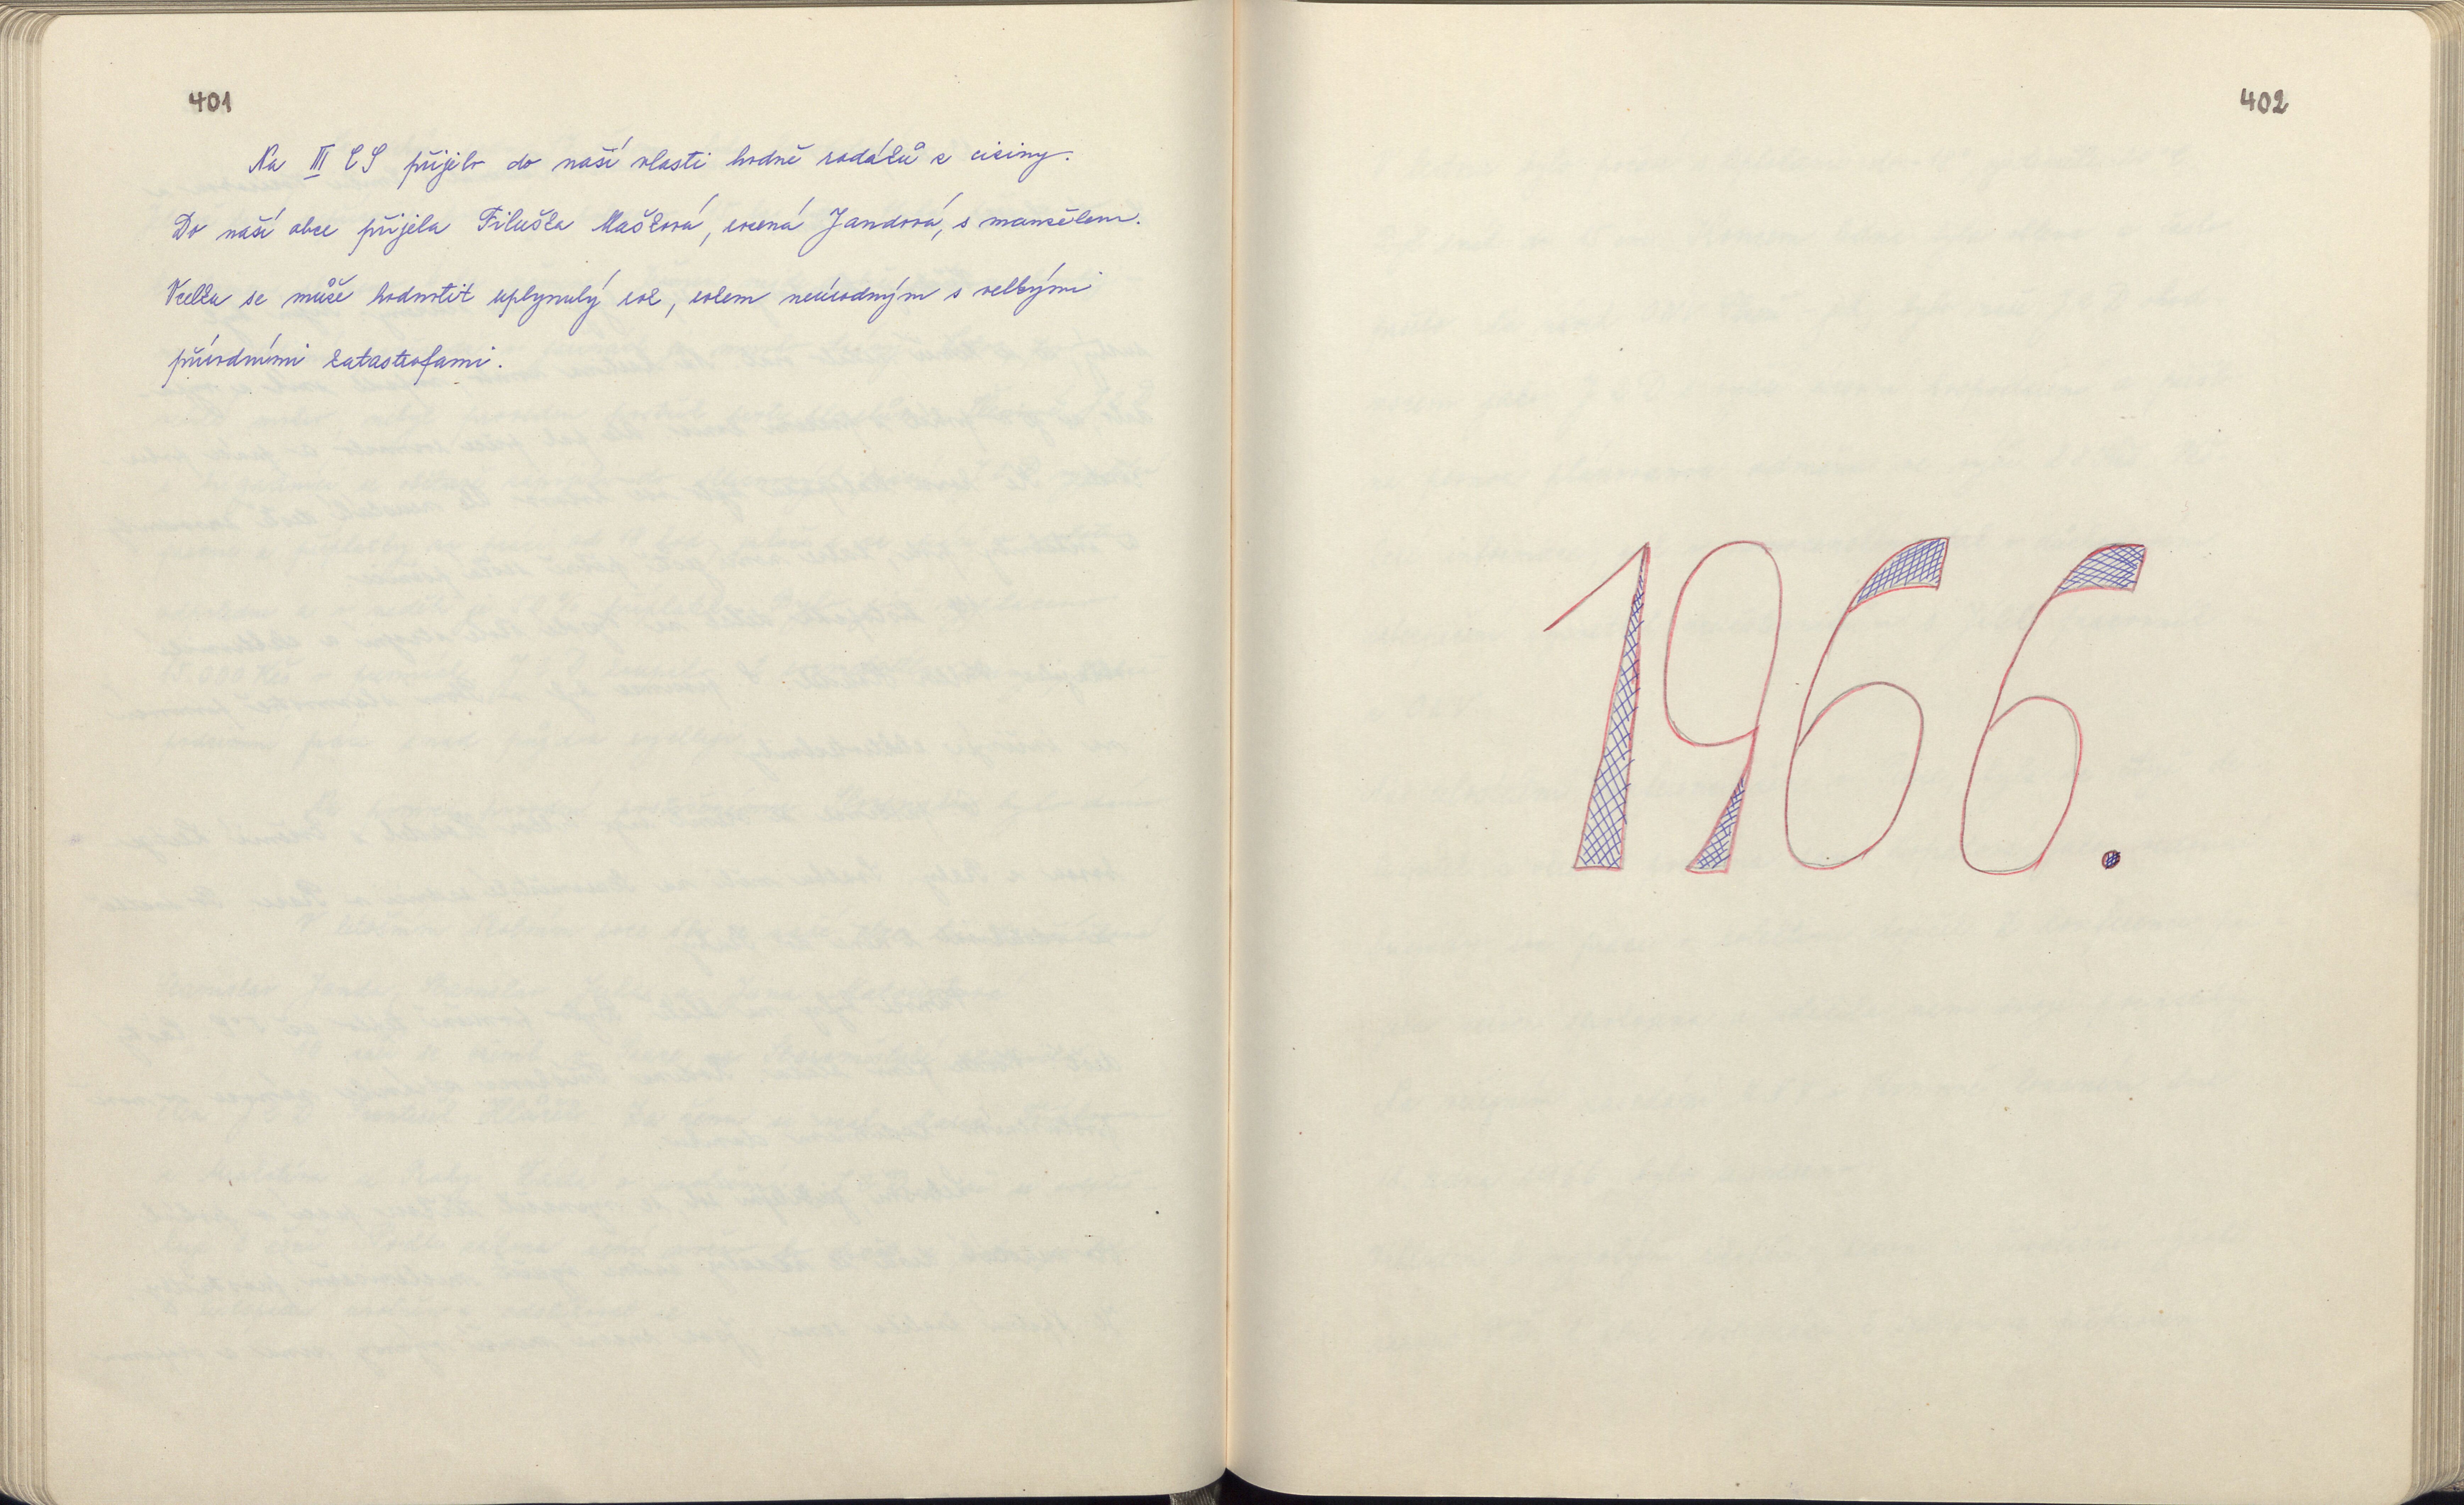 401
Na III CS přijelo do naší vlasti hodně rodáků z ciziny.
Do naší obce přijela Filuška Mašková, rozená Jandová, s manželem.
Vcelku se může hodnotit uplynulý rok, rokem neúrodným s velkými
přírodními katastrofami.
402
1966.